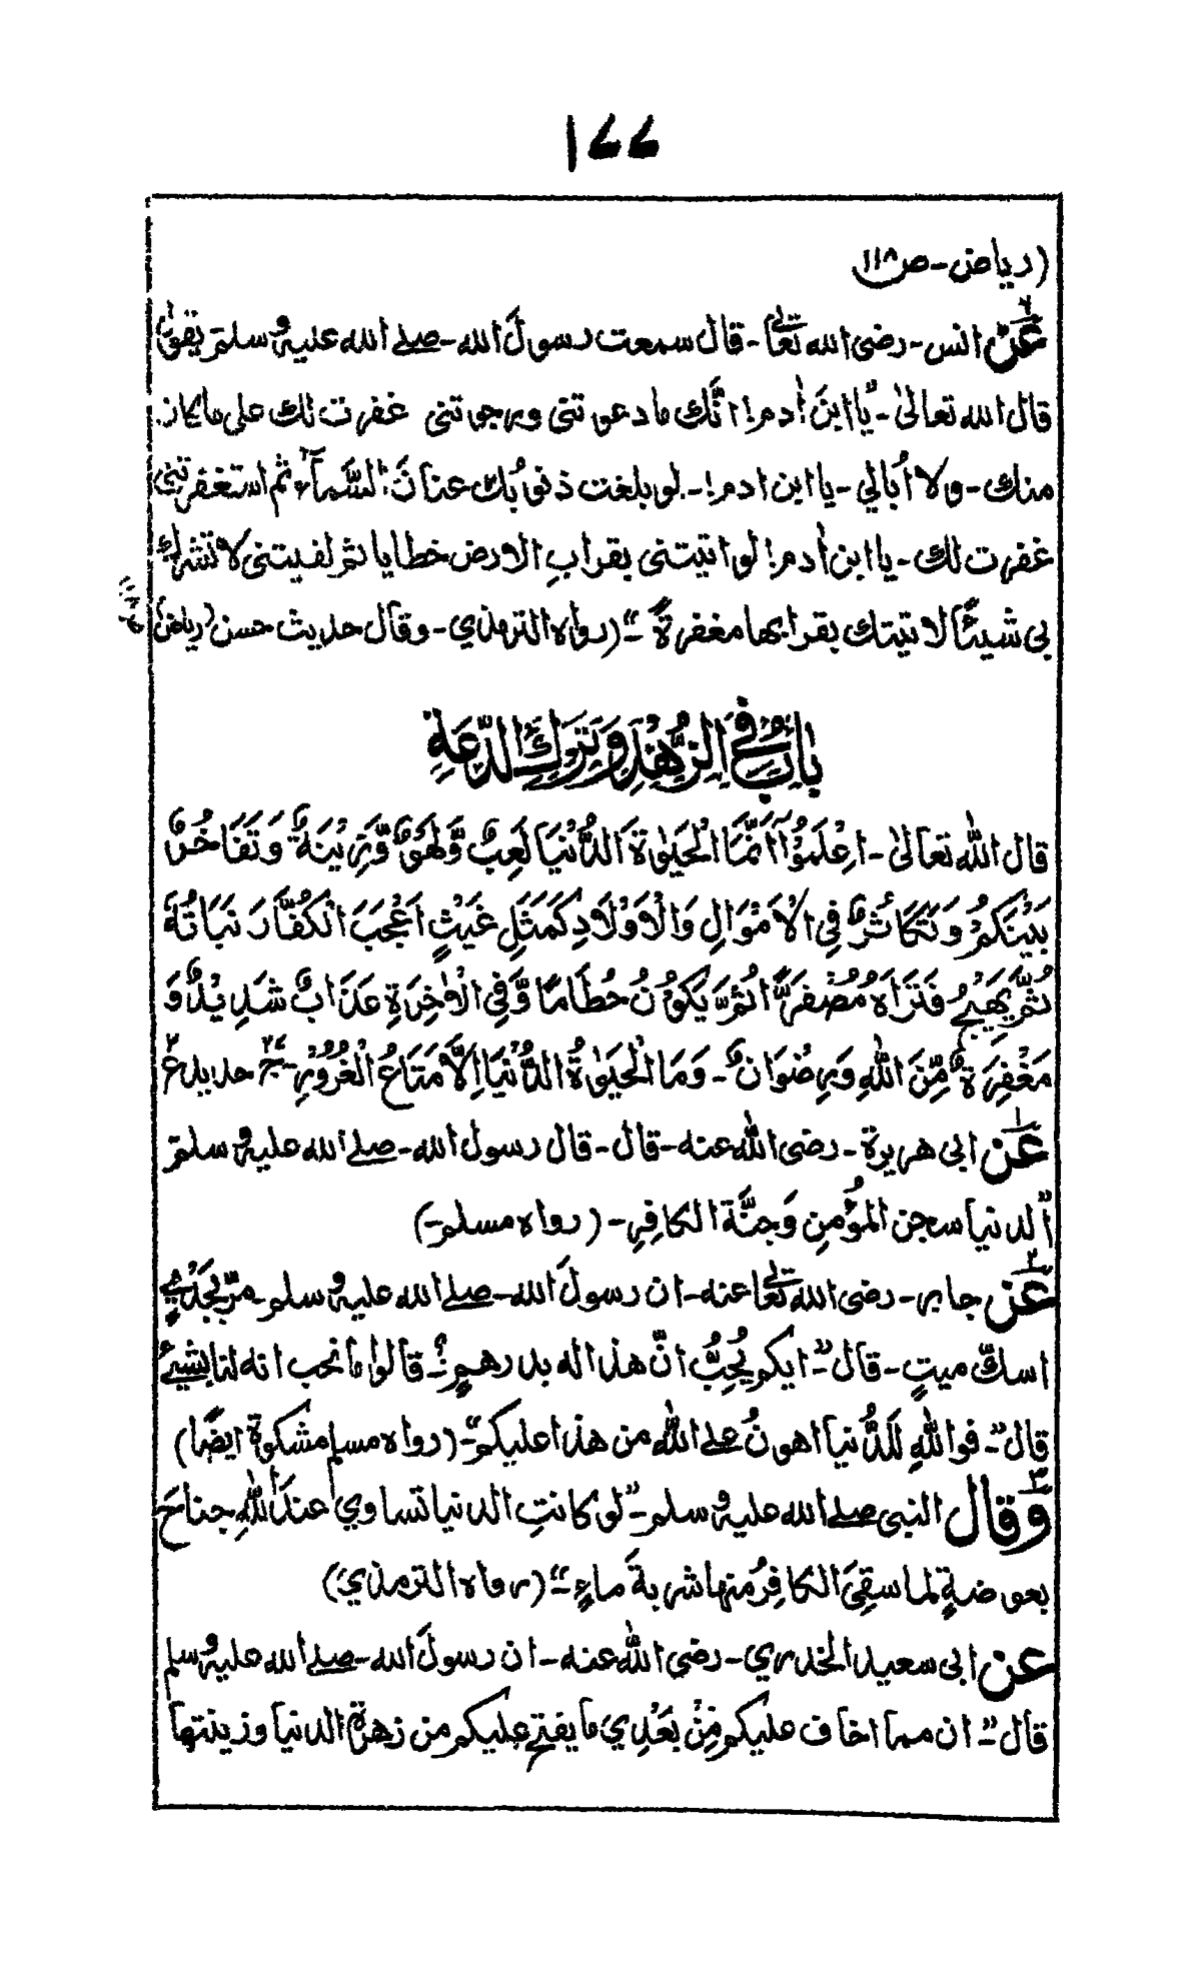 ۱۷۷
(ریاض - ص ۱۱۸
۲ عَنْ انس - رضی الله تعالٰی - قال سمعت رسولَ الله - صلے الله علیه وسلم یقول
قال الله تعالیٰ - "یَا ابنَ اٰدم! انَّك ما دعوتنی ورجوتنی غفرت لك علی ما کان
منك - ولا اُبالي - یا ابن ادم! - لو بلغت ذنوبُك عنانَ السَّمآءِ ثم استغفرتنی
غفرت لك - یا ابن اٰدم! لو اتیتنی بقرابِ الارض خطایا ثم لقیتنی لا تشرك
بی شیئًا لاتیتك بقرابها مغفرةً -" (رواه الترمذي - وقال حدیث حسن (ریاض ص ۱۱۸)
بَابٌ فِي الزُّهْدِ وَتَرْكِ الدَّعَةِ
قال اللّٰه تعالیٰ - اعْلَمُوْٓا اَنَّمَا الْحَيٰوةُ الدُّنْيَا لَعِبٌ وَّلَهْوٌ وَّزِيْنَةٌ وَتَفَاخُرٌ
بَيْنَكُمْ وَتَكَاثُرٌ فِي الْاَمْوَالِ وَالْاَوْلَادِ كَمَثَلِ غَيْثٍ اَعْجَبَ الْكُفَّارَ نَبَاتُهٗ
ثُمَّ يَهِيْجُ فَتَرَاهُ مُصْفَرًّا ثُمَّ يَكُوْنُ حُطَامًا وَّفِي الْاٰخِرَةِ عَذَابٌ شَدِيْدٌ وَ
مَغْفِرَةٌ مِّنَ اللّٰهِ وَرِضْوَانٌ - وَمَا الْحَيٰوةُ الدُّنْيَا اِلَّا مَتَاعُ الْغُرُوْرِ - ۲۷ حدید ۳ع
۱ عَن ابی هریرة - رضی اللّٰه عنه - قال - قال رسول الله - صلے الله علیه وسلم
"الدنیا سجن المؤمنِ وَجنَّة الکافِرِ - (رواه مسلم -)
۲ عَن جابر - رضی الله تعالٰی عنه - ان رسولَ الله - صلے الله علیه وسلم - مرّ بجَدْيٍ
اسكّ میتٍ - قال "- ایکم یُحِبُّ انَّ هذا له بدرهمٍ؟ - قالوا ما نحب انه لنا بشیئ
قال "- فواللّٰهِ لَلدُّنیا اهونُ علے اللّٰهِ من هذا علیکم -" (رواه مسلم مشکوة ایضًا)
۳ وَقال النبی صلے الله علیه وسلم - "لو کانتِ الدنیا تساوي عندَ اللّٰهِ جناحَ
بعوضةٍ لما سقِیَ الکافِرُ منها شربةَ ماءٍ -" (رواه الترمذي)
عن ابی سعید الخدري - رضی اللّٰه عنه - ان رسولَ الله - صلے الله علیه وسلم
قال "- ان مما اخاف علیکم مِنْ بَعْدِي ما یفتح علیکم من زهرة الدنیا وزینتها